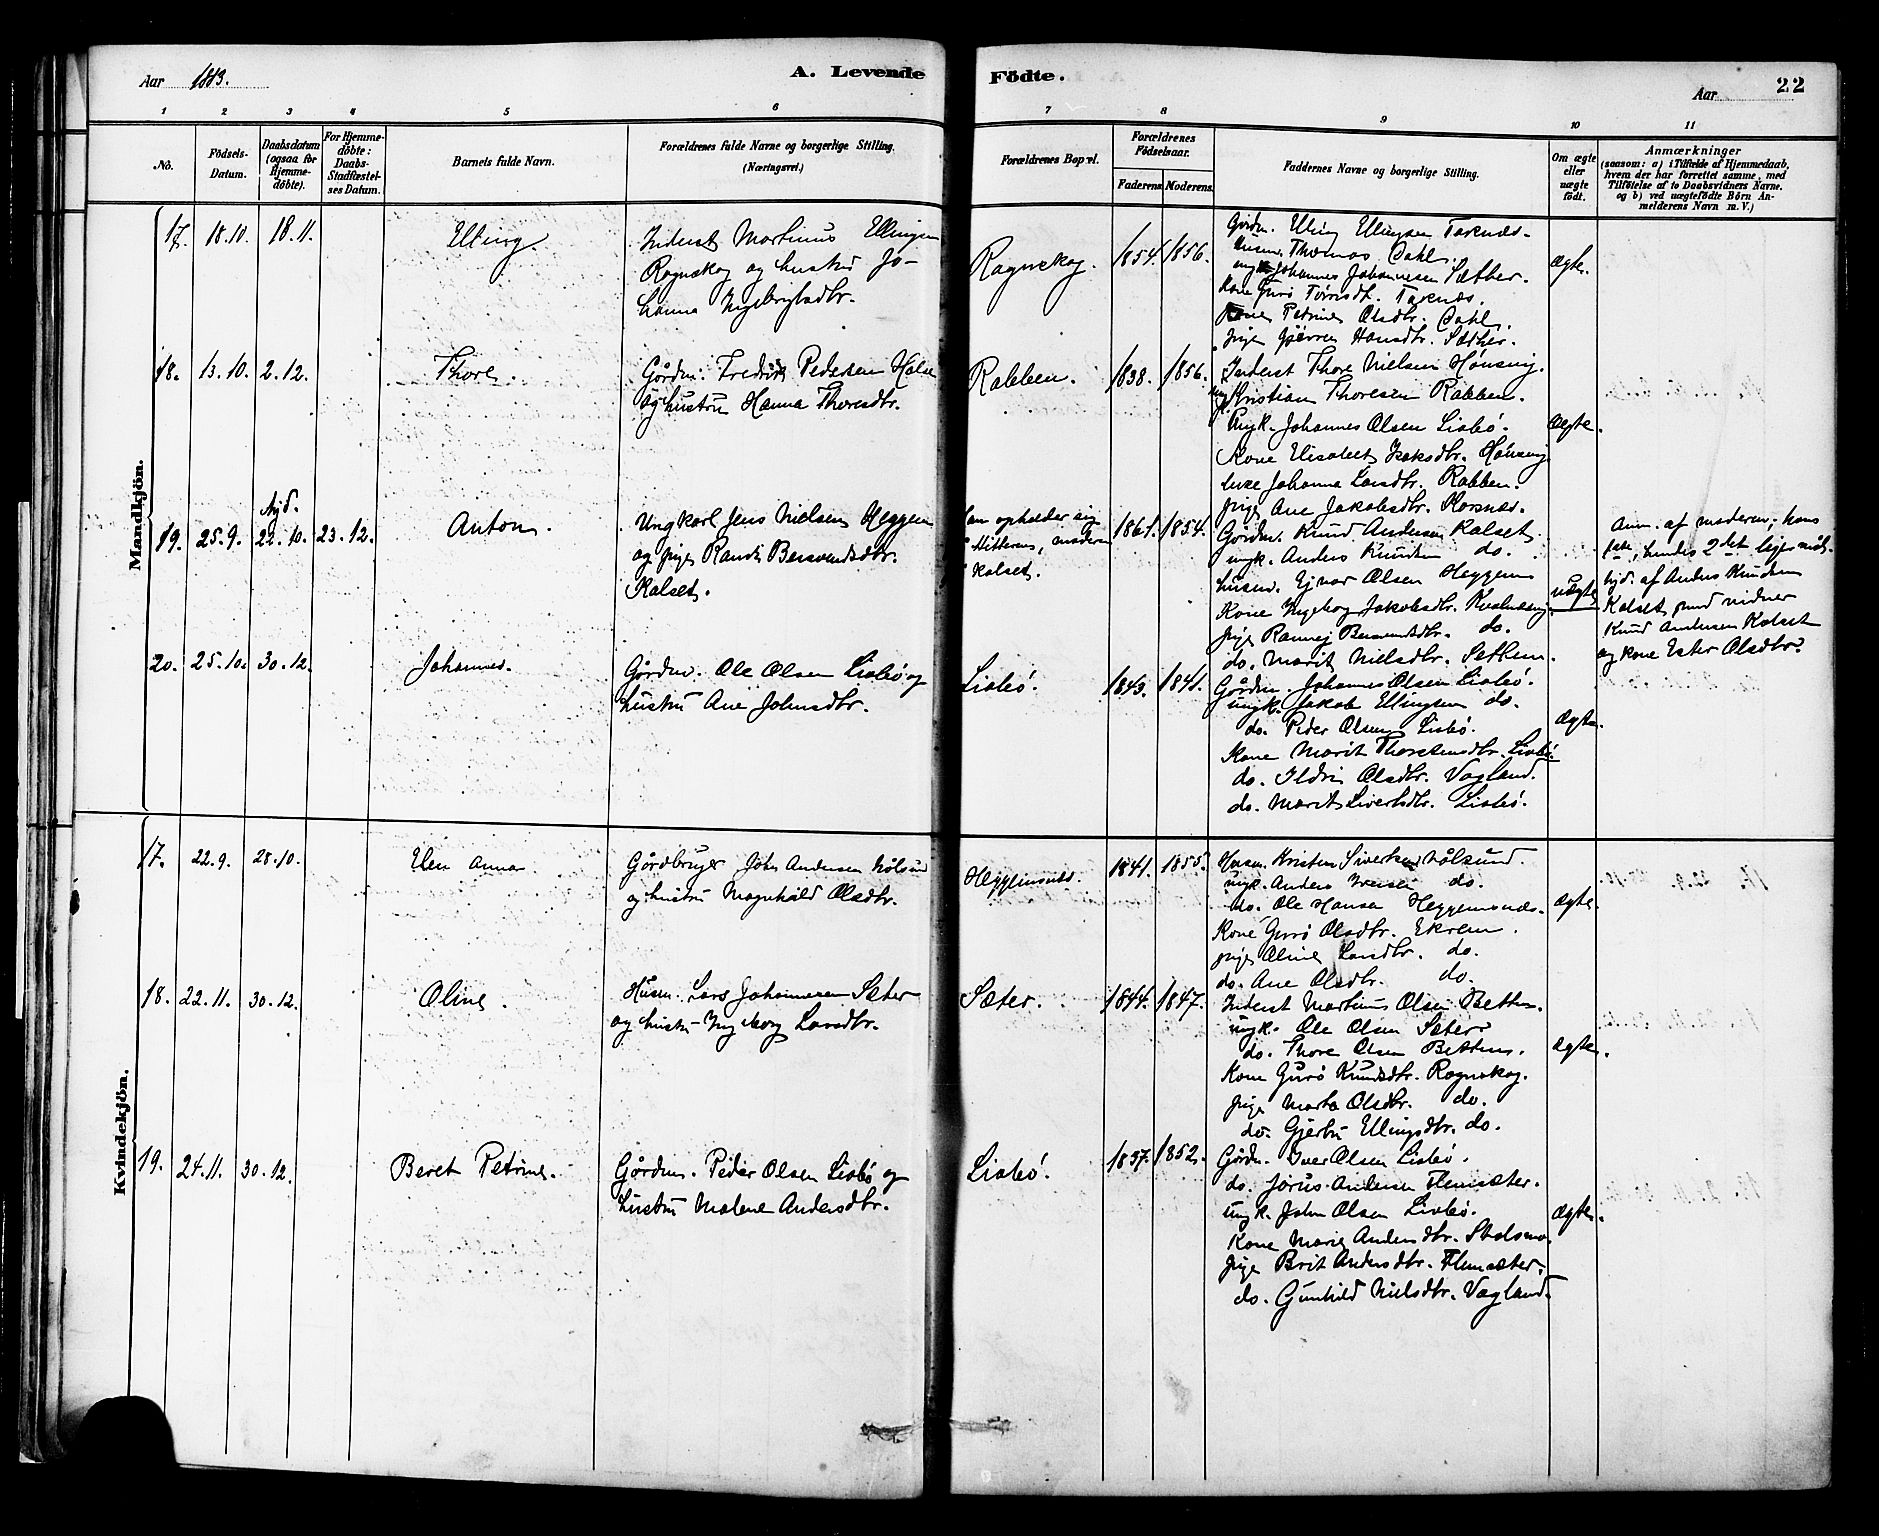 Aar 1883.
A. Levende Födte.
Aar
22
1 2 3 4 5 6 7 8 9 10 11
No.
Födsels-Datum.
Daabsdatum (ogsaa for Hjemme-döbte).
For Hjemme-döbte: Daabs-Stadfæstel-ses Datum.
Barnets fulde Navn.
Forældrenes fulde Navne og borgerlige Stilling. (Næringsvei.)
Forældrenes Bopæl.
Forældrenes Födselsaar.
Faderens. Moderens.
Faddernes Navne og borgerlige Stilling.
Om ægte eller uægte födt.
Anmærkninger
(saasom: a) i Tilfælde af Hjemmedaab, hvem der har forrettet samme, med Tilföielse af to Daabsvidners Navne. og b) ved uægtefödte Börn An-melderens Navn m. V.)
Mandkjön.
17. 18.10. 18.11. Elling.
Inderst Martinus Ellingsen
Rognskog og hustru Jo-
hanna Ingebrigtsdtr.
Rognskog. 1854. 1856.
Gårdm. Elling Ellingsen Taknæs.
Husm. Thomas Dahl.
ungk. Johannes Johannesen Sæther.
Kone Guro Tørrisdt. Taknæs.
Kone Petrine Olsdtr. Dahl.
pige Hansdtr. Sæther.
ægte.
18. 13.10. 2.12. Thore.
Gårdm. Fredrik Pedersen Halse
og hustru Hanna Thoresdtr.
Rabben. 1838. 1856.
Inderst Thore Nielsen Hønsvig.
ungk. Kristian Thoresen Rabben.
Ungk. Johannes Olsen Lisbø.
Kone Elisabet Isaksdtr. Hønsvig
Johanna Larsdtr. Rabben.
pige Ane Jakobsdtr. Korsnæs.
ægte.
19. 25.9. Hjd. 22.10. 23.12. Anton.
Ungkarl Jens Nielsen Heggem
og pige Randi Bersvendsdtr.
Kalset.
Han opholder sig
i Mitteren, moderen
i Kalset.
1861. 1854.
Gårdm. Knud Andersen Kalset.
ungk. Anders Knudsen do.
husm. Ejnar Olsen Heggem
Kone Ingeborg Jakobsdtr. Kvalvaag
pige Rannej Bersvendsdtr. do.
do. Marit Nielsdtr. Settem.
uægte
Anm. af moderen; hans
1ste, hendes 2det lejermål.
hjd. af Anders Knudsen
Kalset, vidner
Knud Andersen Kalset
og kone Ester Olsdtr.
20. 25.10. 30.12. Johannes.
Gårdm. Ole Olsen Lisbø og
hustru Ane Johnsdtr.
Lisbø. 1843. 1841.
Gårdm. Johannes Olsen Lisbø.
ungk. Jakob Ellingsen do.
do. Peder Olsen Lisbø.
Kone Marit Thorstensdtr. Lisbø.
do. Ildri Olsdtr. Vagland.
do. Marit Sivertsdtr. Lisbø.
ægte.
Kvindekjön.
17. 22.9. 28.10. Elen Anna
Gårdbruger John Andersen Aalsund
og hustru Magnhild Olsdtr.
Heggemsnæs. 1841. 1855.
Husm. Kristen Sivertsen Aalsund.
ungk. Anders Iversen do.
do. Ole Hansen Heggemsnæs.
Kone Guro Olsdtr. Ekrem.
pige Oline Larsdtr. do.
do. Ane Olsdtr. do.
ægte.
18. 22.11. 30.12. Oline.
Husm. Lars Johannesen Sæter
og hustru Ingeborg Larsdtr.
Sæter. 1844. 1847.
Inderst Martinus Olsen Betten.
ungk. Ole Olsen Sæter
do. Thore Olsen Betten.
Kone Guro Knudsdtr. Rognskog.
pige Marta Olsdtr. do.
do. Gjertru Ellingsdtr. do.
ægte.
19. 24.11. 30.12. Beret Petrine.
Gårdm. Peder Olsen Lisbø og
hustru Malene Andersdtr.
Lisbø. 1837. 1852.
Gårdm. Iver Olsen Lisbø.
do. Andersen Flemsæter.
ungk. John Olsen Lisbø.
Kone Marie Andersdtr.
pige Brit Andersdtr. Flemsæter.
do. Gunhild Nielsdtr. Vagland.
ægte.